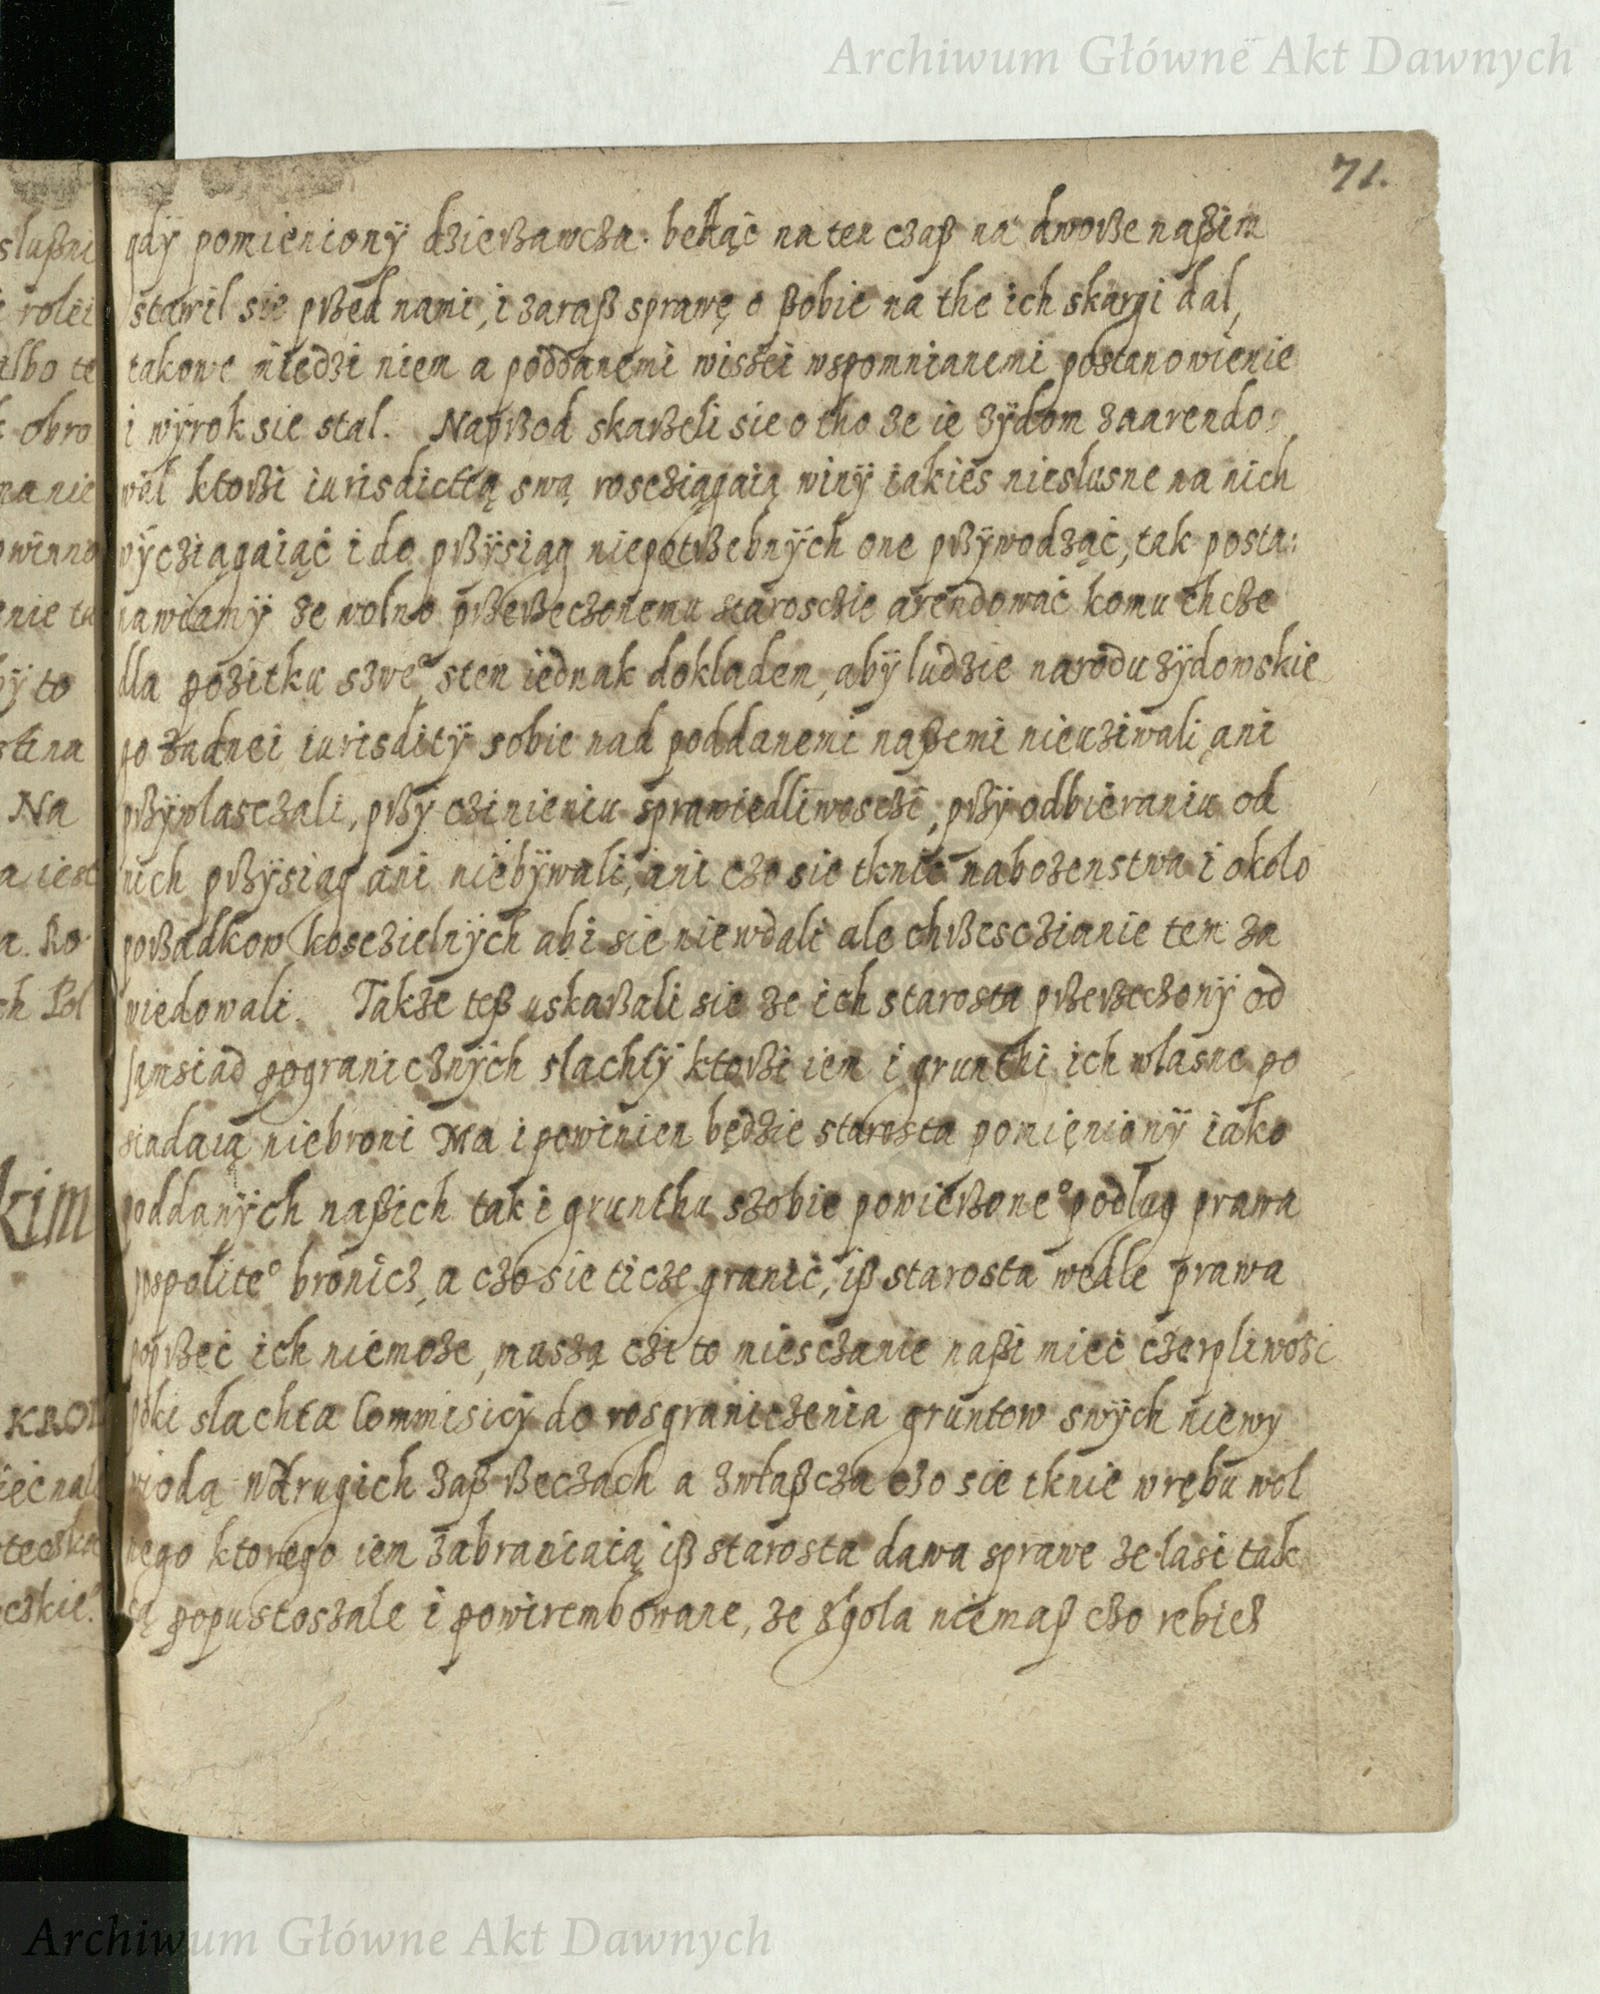 Archiwum Główne Akt Dawnych
71.
gdÿ pomienionÿ dzierzawcza. bendąć na ten czaß na dworze naßim
stawil sie przed nami, i zaraß sprawę o ßobie na the ich skargi dal,
takowe miedzi niem a poddanemi wiszei wspomnianemi postanowienie
i wÿrok sie stal. Naprzod skarzeli sie o tho ze ie zÿdom zaarendo:
wal ktorzi iurisdictią swą rosciągaią winÿ iakies nieslusne na nich
wÿcziągaiąć i do przÿsiąg niepotrzebnÿch one przÿwodząć, tak posta:
nawiamÿ ze wolno przerzeczonemu staroscie arendować komu chcze
dla pozitku szwe° stem iednak dokladem, abÿ ludzie narodu zÿdowskie
go zadnei iurisditÿ sobie nad poddanemi naßemi nieuziwali, ani
przÿwlasczali, przÿ czinieniu sprawiedliwosczi, przÿ odbieraniu od
nich przÿsiąg ani niebÿwali, ani czo sie tknie nabozenstwa i okolo
porzadkow koscielnÿch abi sie niewdali ale chrzesczianie tem za
wiedowali. Takze teß uskarzali sie ze ich starosta przerzeczonÿ od
sąmsiad pogranicznÿch slachtÿ ktorzi iem i grunthi ich wlasne po
siadaią niebroni Ma i powinien będzie starosta pomięnionÿ iako
poddanÿch naßich tak i grunthu szobie powierzone° podlug prawa
pospolite° bronicz, a czo sie ticze granić, iß starosta wedle prawa
poprzeć ich niemoze, muszą czi to miesczanie naßi mieć czerpliwosi
poki slachta Commisicÿ do rosgraniczenia gruntow swÿch niewy
wiodą Wdrugich zaß rzeczach a zwłaßcza czo sie tknie wrębu wol
nego ktorego iem zabraniaią iß starosta dawa sprawe ze lasi tak
są popustoszale i powirembowane, ze zgola niemaß czo rebicz
Archiwum Główne Akt Dawnych